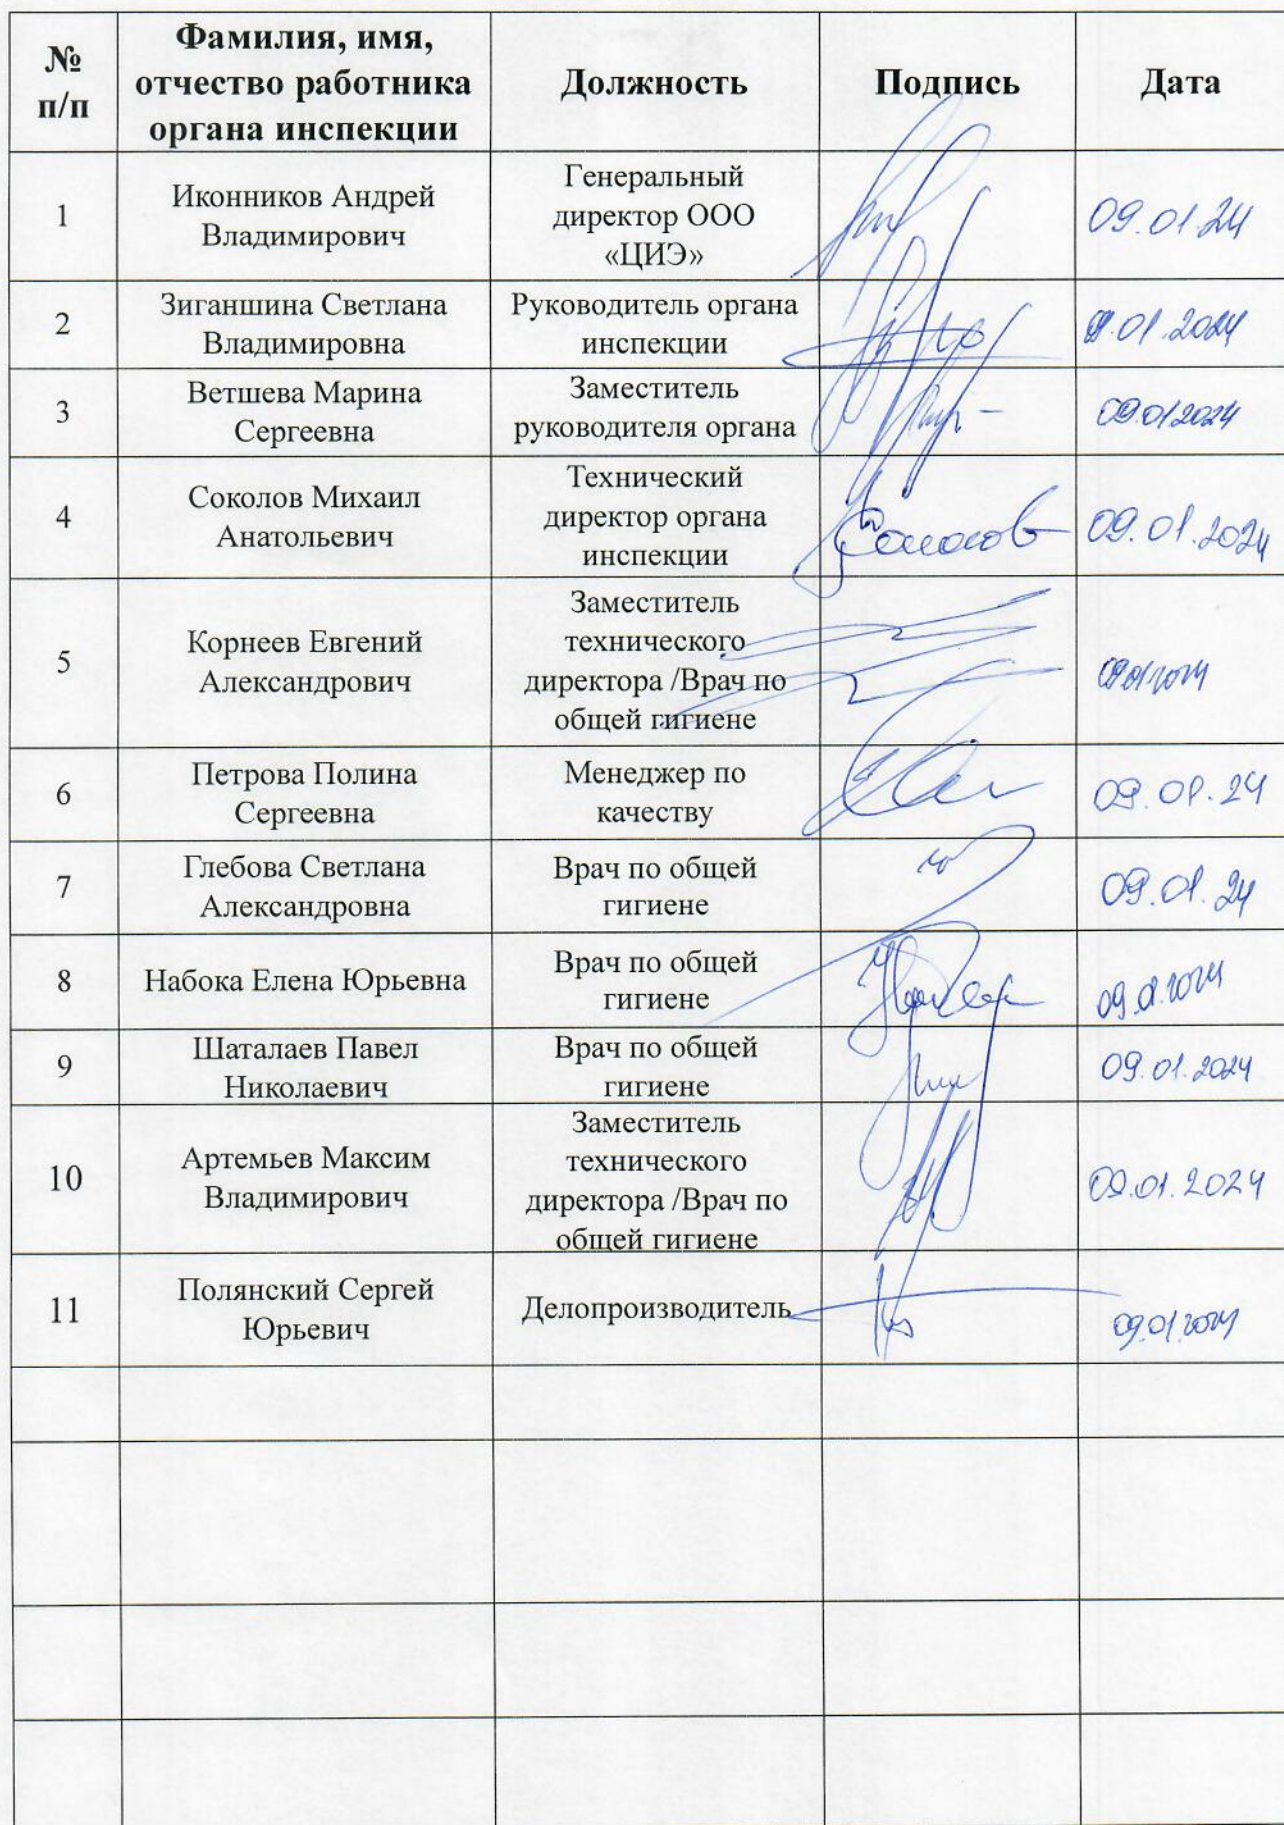 № п/п
Фамилия, имя,
отчество работника
органа инспекции
Должность
Подпись
Дата
1
Иконников Андрей
Владимирович
Генеральный
директор ООО
«ЦИЭ»
09.01.24
2
Зиганшина Светлана
Владимировна
Руководитель органа
инспекции
09.01.2024
3
Ветшева Марина
Сергеевна
Заместитель
руководителя органа
09.01.2024
4
Соколов Михаил
Анатольевич
Технический
директор органа
инспекции
Соколов
09.01.2024
5
Корнеев Евгений
Александрович
Заместитель
технического
директора /Врач по
общей гигиене
09.01.2024
6
Петрова Полина
Сергеевна
Менеджер по
качеству
09.01.24
7
Глебова Светлана
Александровна
Врач по общей
гигиене
09.01.24
8
Набока Елена Юрьевна
Врач по общей
гигиене
09.01.2024
9
Шаталаев Павел
Николаевич
Врач по общей
гигиене
09.01.2024
10
Артемьев Максим
Владимирович
Заместитель
технического
директора /Врач по
общей гигиене
09.01.2024
11
Полянский Сергей
Юрьевич
Делопроизводитель
09.01.2024